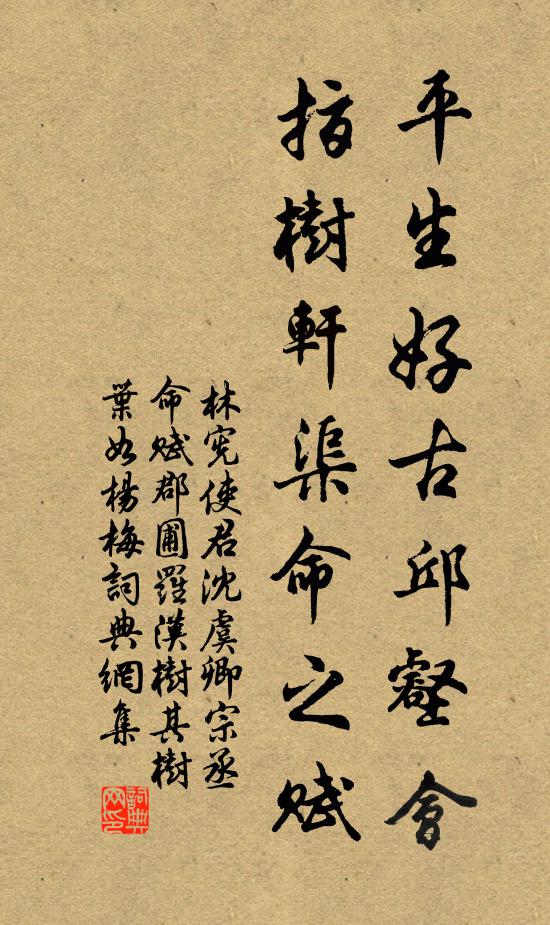 平生好古邱壑會
指樹軒渠命之賦
林憲使君沈虞卿宗丞
命賦郡圃羅漢樹其樹
葉如楊梅詞典網集
詞典网印